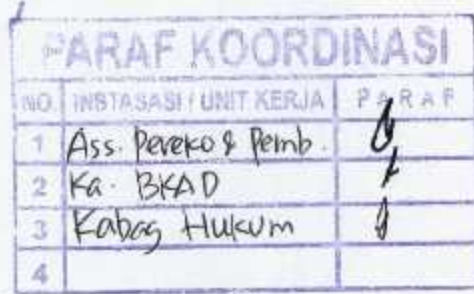 PARAF KOORDINASI
NO. INSTASASI / UNIT KERJA PARAF
1 Ass. Pereko & Pemb.
2 Ka. BKAD
3 Kabag Hukum
4